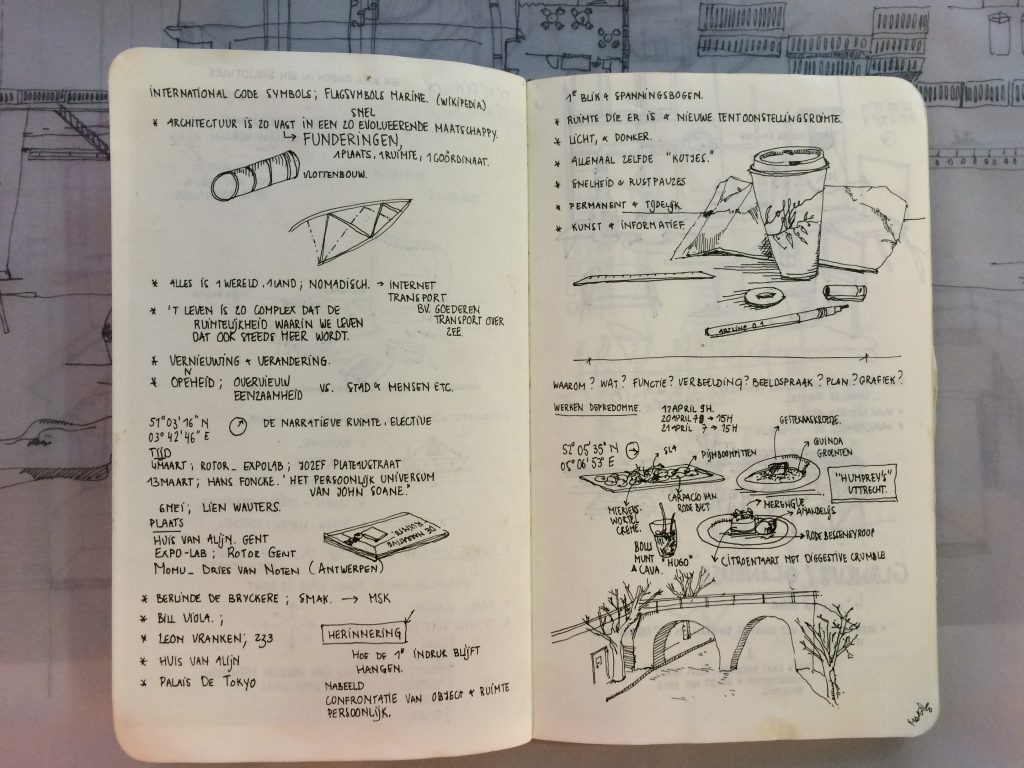 INTERNATIONAL CODE SYMBOLS; FLAGSYMBOLS MARINE. (WIKIPEDIA)
SNEL
* ARCHITECTUUR IS ZO VAST IN EEN ZO EVOLUEERENDE MAATSCHAPPY.
↳ FUNDERINGEN,
1 PLAATS, 1 RUIMTE, 1 COÖRDINAAT.
VLOTTENBOUW.
* ALLES IS 1 WERELD, 1 LAND; NOMADISCH. → INTERNET
TRANSPORT
BV. GOEDEREN
TRANSPORT OVER
ZEE.
* 'T LEVEN IS ZO COMPLEX DAT DE
RUIMTELIJKHEID WAARIN WE LEVEN
DAT OOK STEEDS MEER WORDT.
* VERNIEUWING & VERANDERING.
N
* OPENHEID; OVERVIEUW VS. STAD & MENSEN ETC.
EENZAAMHEID
51° 03' 16" N
03° 42' 46" E
DE NARRATIEVE RUIMTE, ELECTIVE
TIJD
4 MAART; ROTOR_ EXPOLAB; JOZEF PLATEAUSTRAAT
13 MAART; HANS FONCKE. 'HET PERSOONLIJK UNIVERSUM
VAN JOHN SOANE."
6 MEI; LIEN WAUTERS.
PLAATS
HUIS VAN ALIJN. GENT
EXPO-LAB; ROTOR GENT
MOMU_ DRIES VAN NOTEN (ANTWERPEN)
DE NARRATIVE
RUIMTE.
* BERLINDE DE BRYCKERE; SMAK. → MSK
* BILL VIOLA.;
* LEON VRANKEN; Z33
* HUIS VAN ALIJN
* PALAIS DE TOKYO
HERINNERING
HOE DE 1e INDRUK BLIJFT
HANGEN.
NABEELD
CONFRONTATIE VAN OBJECT & RUIMTE
PERSOONLIJK.
1E BLIK & SPANNINGSBOGEN.
* RUIMTE DIE ER IS & NIEUWE TENTOONSTELLINGSRUIMTE.
* LICHT, & DONKER.
* ALLEMAAL ZELFDE "KOTJES."
* SNELHEID & RUSTPAUZES
* PERMANENT & TIJDELIJK
* KUNST & INFORMATIEF.
Coffee
ARTLINE 0.1
WAAROM? WAT? FUNCTIE? VERBEELDING? BEELDSPRAAK? PLAN? GRAFIEK?
WERKEN DEPREDOMME.
17 APRIL 9H.
20 APRIL 7 → 15H
21 APRIL 7 → 15H
52° 05' 35" N
05° 06' 53" E
SLA
PIJNBOOMPITTEN
GEITENKAASKROKETJE.
QUINOA
GROENTEN
"HUMPREY'S"
UTTRECHT.
MIERIKS-
WORTEL
CREME.
CARPACIO VAN
RODE BIET
BOLLS
MUNT
& CAVA.
"HUGO"
MERENGUE
AMANDELIJS
RODE BESSENSYROOP
CITROENTAART MET DIGGESTIVE CRUMBLE